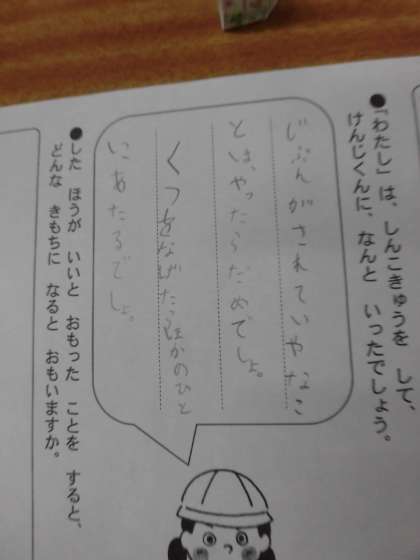 ●「わたし」は、しんこきゅうを して、
けんじくんに、なんと いったでしょう。
じぶんがされていやなこ
とは、やったらだめでしょ。
くつをなげたらほかのひと
にあたるでしょ。
●した ほうが いいと おもった ことを すると、
どんな きもちに なると おもいますか。